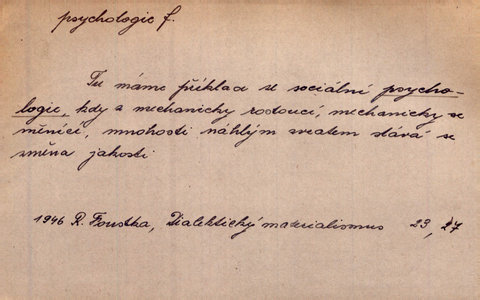 psychologie f.
Tu máme příklad ze sociální psycho-
logie, kdy z mechanicky rostoucí, mechanicky se
měnící, mnohosti náhlým zvratem stává se
změna jakosti
1946 R. Foustka, Dialektický materialismus 23, 27